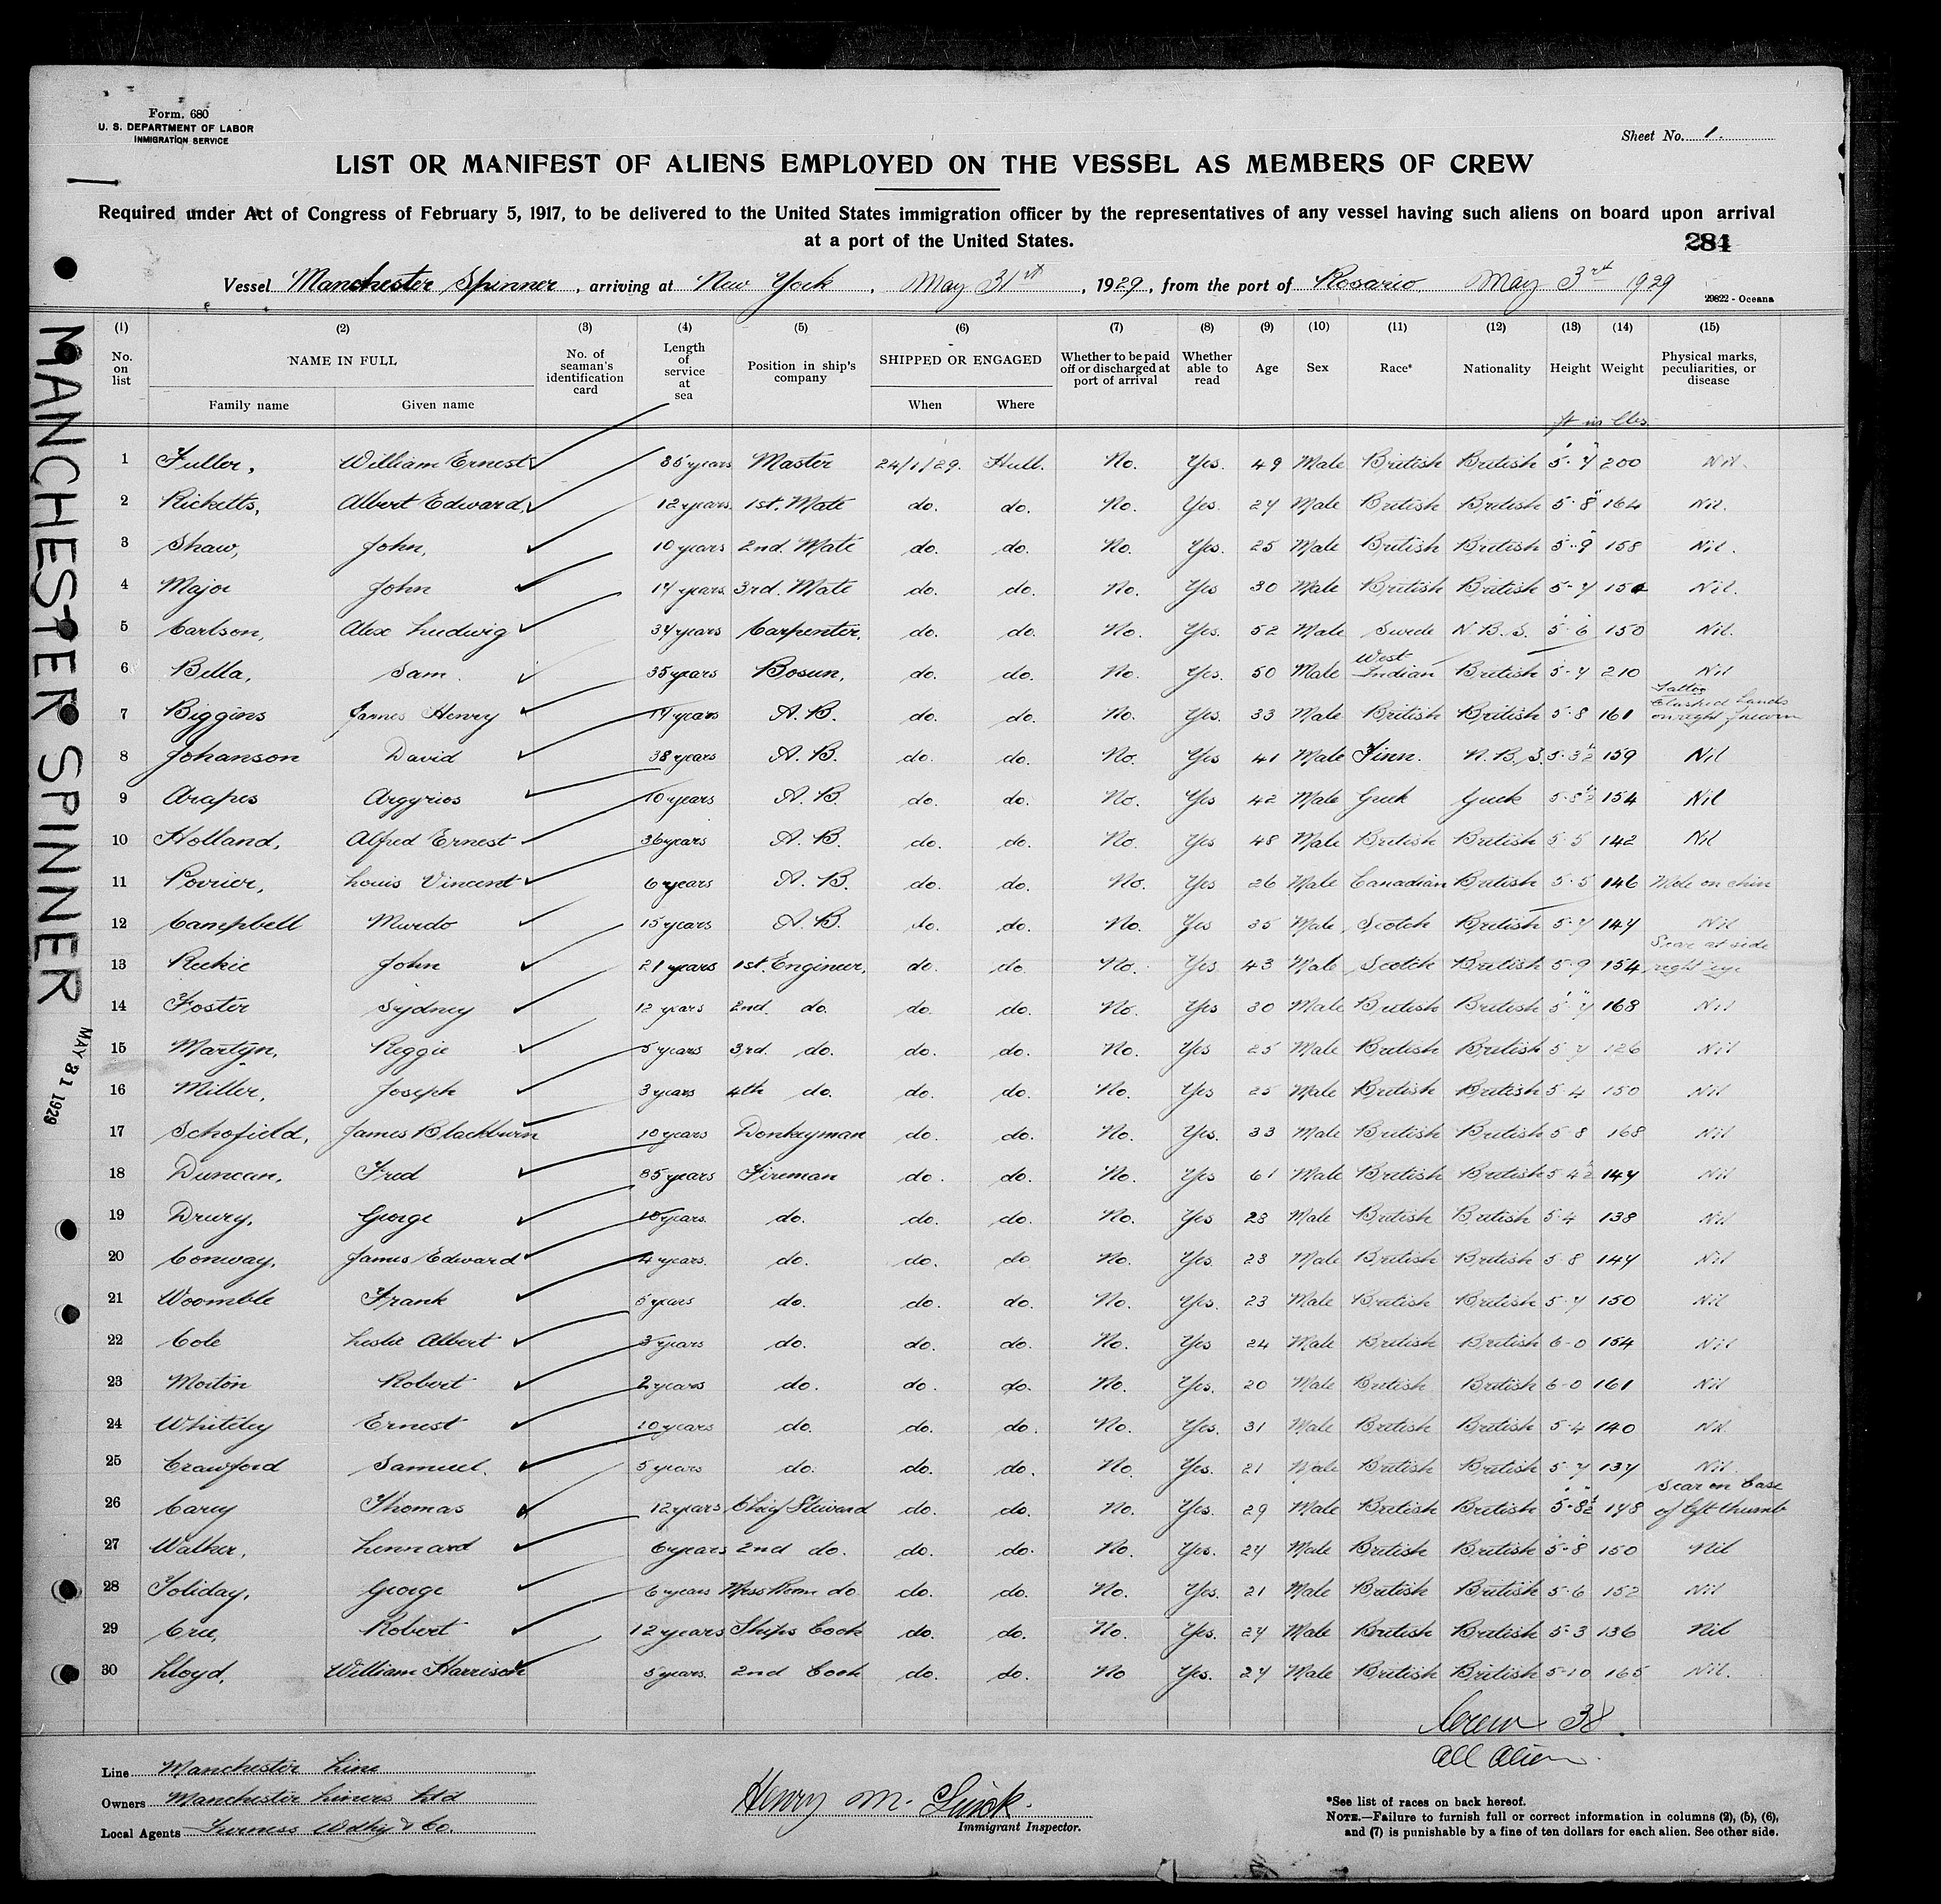 Form. 680
U. S. DEPARTMENT OF LABOR
INMIGRATION SERVICE
Sheet No. 1.
LIST OR MANIFEST OF ALIENS EMPLOYED ON THE VESSEL AS MEMBERS OF CREW
Required under Act of Congress of February 5, 1917, to be delivered to the United States immigration officer by the representatives of any vessel having such aliens on board upon arrival
at a port of the United States.
284
Vessel Manchester Spinner, arriving at New York, May 31st, 1929, from the port of Rosario May 3rd 1929
29822 - Oceana
MANCHESTER SPINNER
MAY 31 1929
(1) (2) (3) (4) (5) (6) (7) (8) (9) (10) (11) (12) (13) (14) (15)
No. on list NAME IN FULL No. of seaman's identification card Length of service at sea Position in ship's company SHIPPED OR ENGAGED Whether to be paid off or discharged at port of arrival Whether able to read Age Sex Race* Nationality Height Weight Physical marks, peculiarities, or disease
Family name Given name When Where
ft ins lbs.
1 Fuller, William Ernest 35 years Master 24/1/29. Hull. No. Yes. 49 Male British British 5-7 200 Nil.
2 Ricketts, Albert Edward, 12 years 1st. Mate do. do. No. Yes. 27 Male British British 5-8 164 Nil.
3 Shaw, John, 10 years 2nd. Mate do. do. No. Yes. 25 Male British British 5-9 158 Nil.
4 Major John 17 years 3rd. Mate do. do. No. Yes 30 Male British British 5-7 154 Nil.
5 Carlson, Alex Ludwig 37 years Carpenter, do. do. No. Yes. 52 Male Swede N. B. S. 5-6 150 Nil.
6 Bella, Sam. 35 years Bosun, do. do. No. Yes. 50 Male West Indian British 5-7 210 Nil
7 Biggins James Henry 17 years A. B. do. do. No. Yes. 33 Male British British 5-8 161 Tattoo Clasped hands on right forearm
8 Johanson David 38 years A. B. do. do. No. Yes 41 Male Finn. N. B. S. 5-3½ 159 Nil
9 Arapes Argyrios 10 years A. B. do. do. No. Yes 42 Male Greek Greek 5-8½ 154 Nil
10 Holland, Alfred Ernest 36 years A. B. do. do. No. Yes 48 Male British British 5-5 142 Nil
11 Poirier, Louis Vincent 6 years A. B. do. do. No. Yes 26 Male Canadian British 5-5 146 Mole on chin
12 Campbell Murdo 15 years A. B. do. do. No. Yes 35 Male Scotch British 5-7 147 Nil
13 Reekie John 21 years 1st. Engineer, do. do. No. Yes. 43 Male Scotch British 5-9 154 Scar at side right eye
14 Foster Sydney 12 years 2nd. do. do. do. No. Yes 30 Male British British 5-7 168 Nil
15 Martyn, Reggie 5 years 3rd. do. do. do. No. Yes 25 Male British British 5-7 126 Nil
16 Miller, Joseph 3 years 4th do. do. do. No. Yes 25 Male British British 5-4 150 Nil
17 Schofield, James Blackburn 10 years Donkeyman do. do. No. Yes. 33 Male British British 5-8 168 Nil
18 Duncan, Fred 35 years Fireman do. do. No. Yes 61 Male British British 5-4½ 147 Nil
19 Drury, George 10 years do. do. do. No. Yes 28 Male British British 5-4 138 Nil
20 Conway, James Edward 4 years do. do. do No. Yes 23 Male British British 5-8 147 Nil
21 Woomble Frank 5 years do. do. do. No. Yes. 23 Male British British 5-7 150 Nil
22 Cole Leslie Albert 3 years do. do. do. No. Yes 24 Male British British 6-0 154 Nil
23 Moiton Robert 2 years do. do. do. No. Yes. 20 Male British British 6-0 161 Nil
24 Whiteley Ernest 10 years do. do. do. No. Yes. 31 Male British British 5-4 140 Nil
25 Crawford Samuel. 5 years do. do. do. No. Yes. 21 Male British British 5-7 137 Nil
26 Carey Thomas 12 years Chief Steward do. do. No. Yes. 29 Male British British 5-8½ 148 Scar on base of left thumb
27 Walker, Lennard 6 years 2nd do. do. do. No. Yes. 27 Male British British 5-8 150 Nil
28 Toliday, George 6 years Mess Room do do. do. No. Yes. 21 Male British British 5-6 152 Nil
29 Cree, Robert 12 years Ships Cook do. do. No. Yes. 27 Male British British 5-3 136 Nil
30 Lloyd, William Harrison 5 years. 2nd Cook do. do. No Yes. 27 Male British British 5-10 165 Nil.
Crew 38.
All Alien.
Line Manchester Line
Owners Manchester Liners Ltd
Local Agents Furness Withy & Co.
Henry M.
Immigrant Inspector.
*See list of races on back hereof.
NOTE.—Failure to furnish full or correct information in columns (2), (5), (6),
and (7) is punishable by a fine of ten dollars for each alien. See other side.